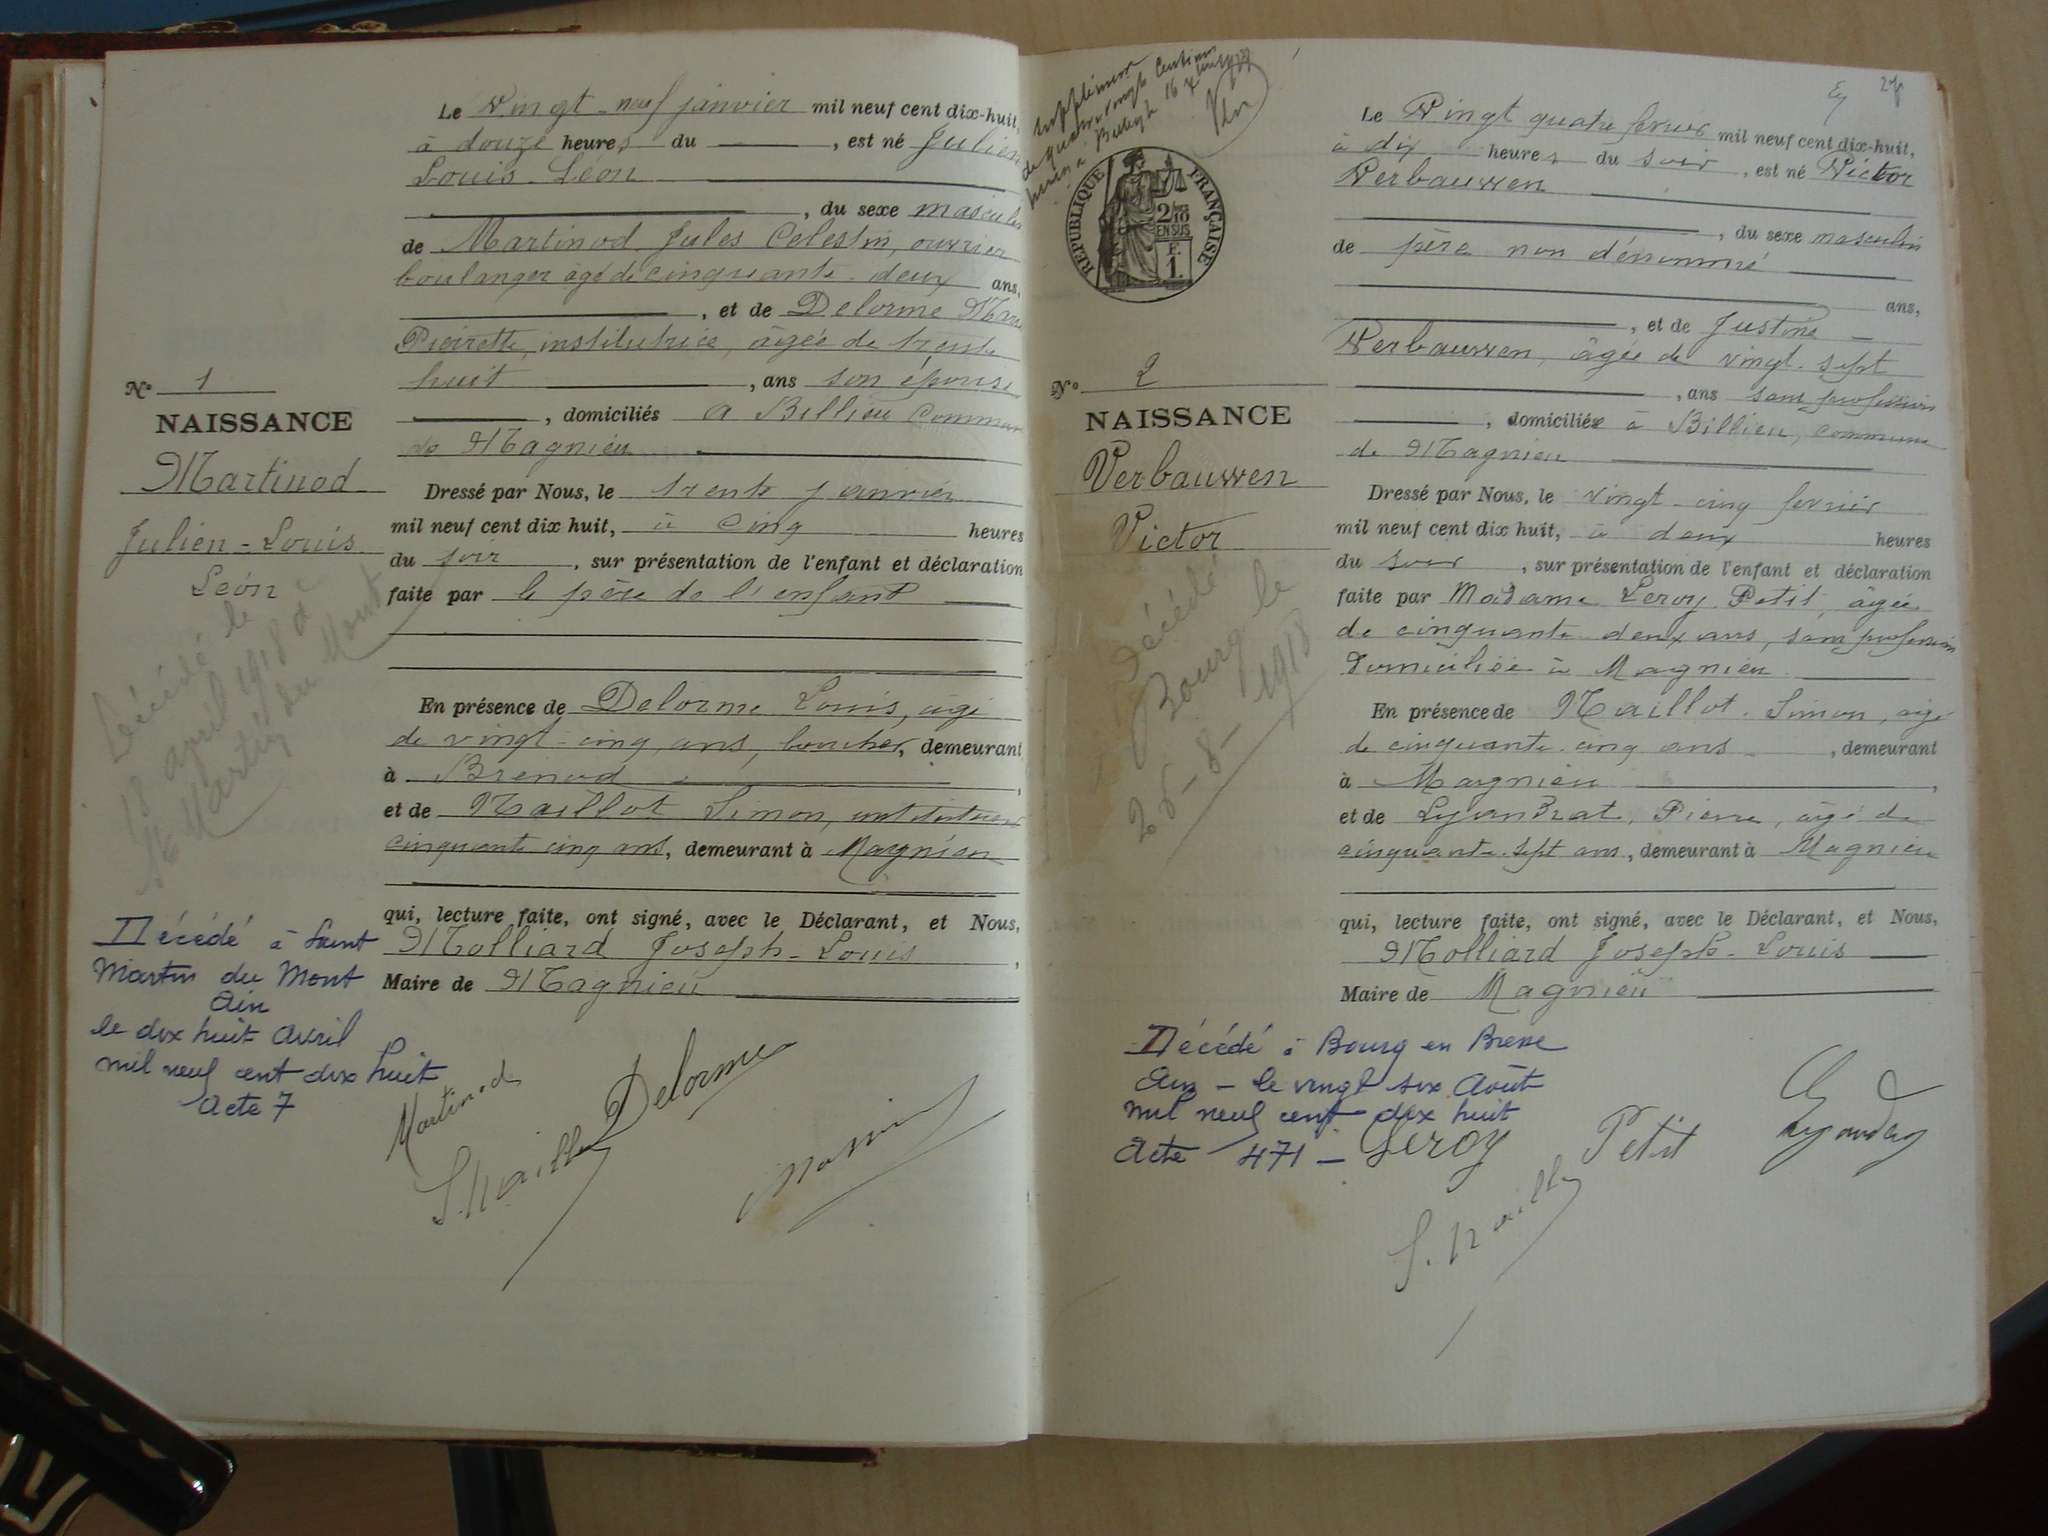 Le Vingt-neuf janvier mil neuf cent dix-huit,
à douze heures du, est né Julien
Louis-Léon
, du sexe masculin
de Martinod Jules Celestin, ouvrier
boulanger âgé de cinquante-deux ans,
, et de Delorme
Pierrette, institutrice, âgée de trente
huit, ans son épouse
, domiciliés à Billieu commune
de Magnieu
N° 1
NAISSANCE
Martinod
Julien-Louis
Léon
Dressé par Nous, le trente janvier
mil neuf cent dix huit, à cinq heures
du soir, sur présentation de l'enfant et déclaration
faite par le père de l'enfant
Décédé le
18 avril 1918 à
St Martin du Mont
En présence de Delorme Louis, âgé
de vingt-cinq ans, boucher, demeurant
à Brénod,
et de Maillot Simon, instituteur
cinquante cinq ans, demeurant à Magnieu
qui, lecture faite, ont signé, avec le Déclarant, et Nous,
Molliard Joseph-Louis,
Maire de Magnieu
Décédé à Saint
Martin du Mont
Ain
le dix huit Avril
mil neuf cent dix huit
Acte 7
Martinod
Delorme
S. Maillot
supplément
de quatre vingts centimes
RÉPUBLIQUE FRANÇAISE
2/10
EN SUS
F.
1.
Le Vingt quatre fevrier mil neuf cent dix-huit,
à dix heures du soir, est né Victor
Verbauwen
, du sexe masculin
de père non dénommé
ans,
, et de Justine
Verbauwen, âgée de vingt-sept
, ans sans profession
, domiciliée à Billieu, commune
de Magnieu
N° 2
NAISSANCE
Verbauwen
Victor
Dressé par Nous, le vingt-cinq fevrier
mil neuf cent dix huit, à deux heures
du soir, sur présentation de l'enfant et déclaration
faite par Madame Leroy Petit, âgée
de cinquante deux ans, sans profession
domiciliée à Magnieu
Décédé
Bourg le
26-8-1918
En présence de Maillot Simon, âgé
de cinquante-cinq ans, demeurant
à Magnieu,
et de Lyandrat, Pierre, âgé de
cinquante-sept ans, demeurant à Magnieu
qui, lecture faite, ont signé, avec le Déclarant, et Nous,
Molliard Joseph-Louis
Maire de Magnieu
Décédé à Bourg en Bresse
Ain - le vingt six Août
mil neuf cent dix huit
Acte 471 -
Leroy Petit
S. Maillot